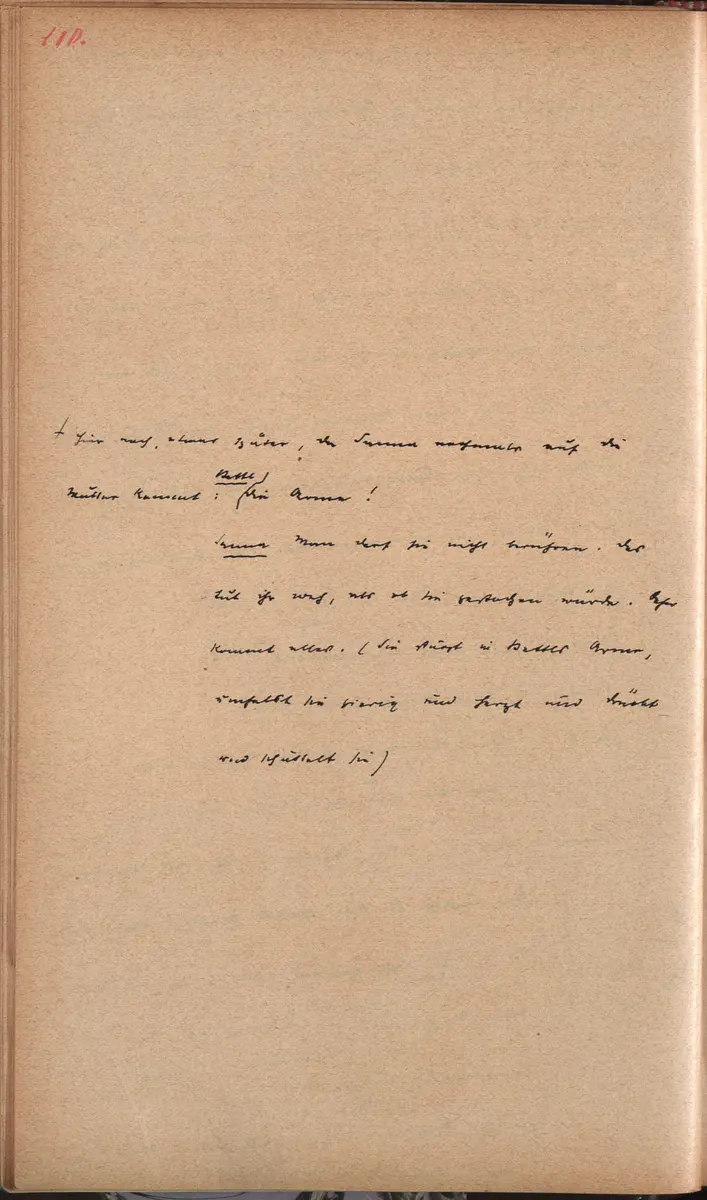 110.
+ hier nach, etwas später, da Sanna nochmals auf die
Bettl)
Mutter kommt : (Die Arme !
Sanna Man darf sie nicht berühren. Das
tut ihr weh, als ob sie gestochen würde.
kommt alles. (Sie stürzt in Bettls Arme,
umfasst sie gierig und herzt und drückt
und schüttelt sie)